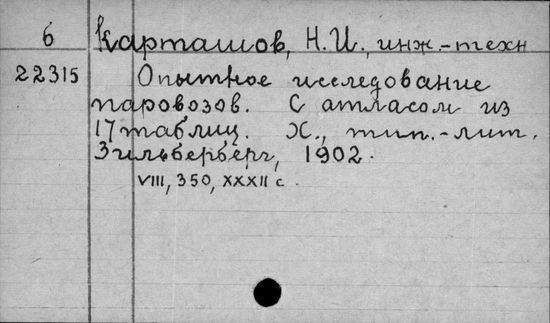 6 Карташов, Н. И., инж.-техн
22315 Опытное исследование
паровозов. С атласом из
17 таблиц. Х., тип.-лит.
Зильберберг, 1902.
VIII, 350, XXXII с.